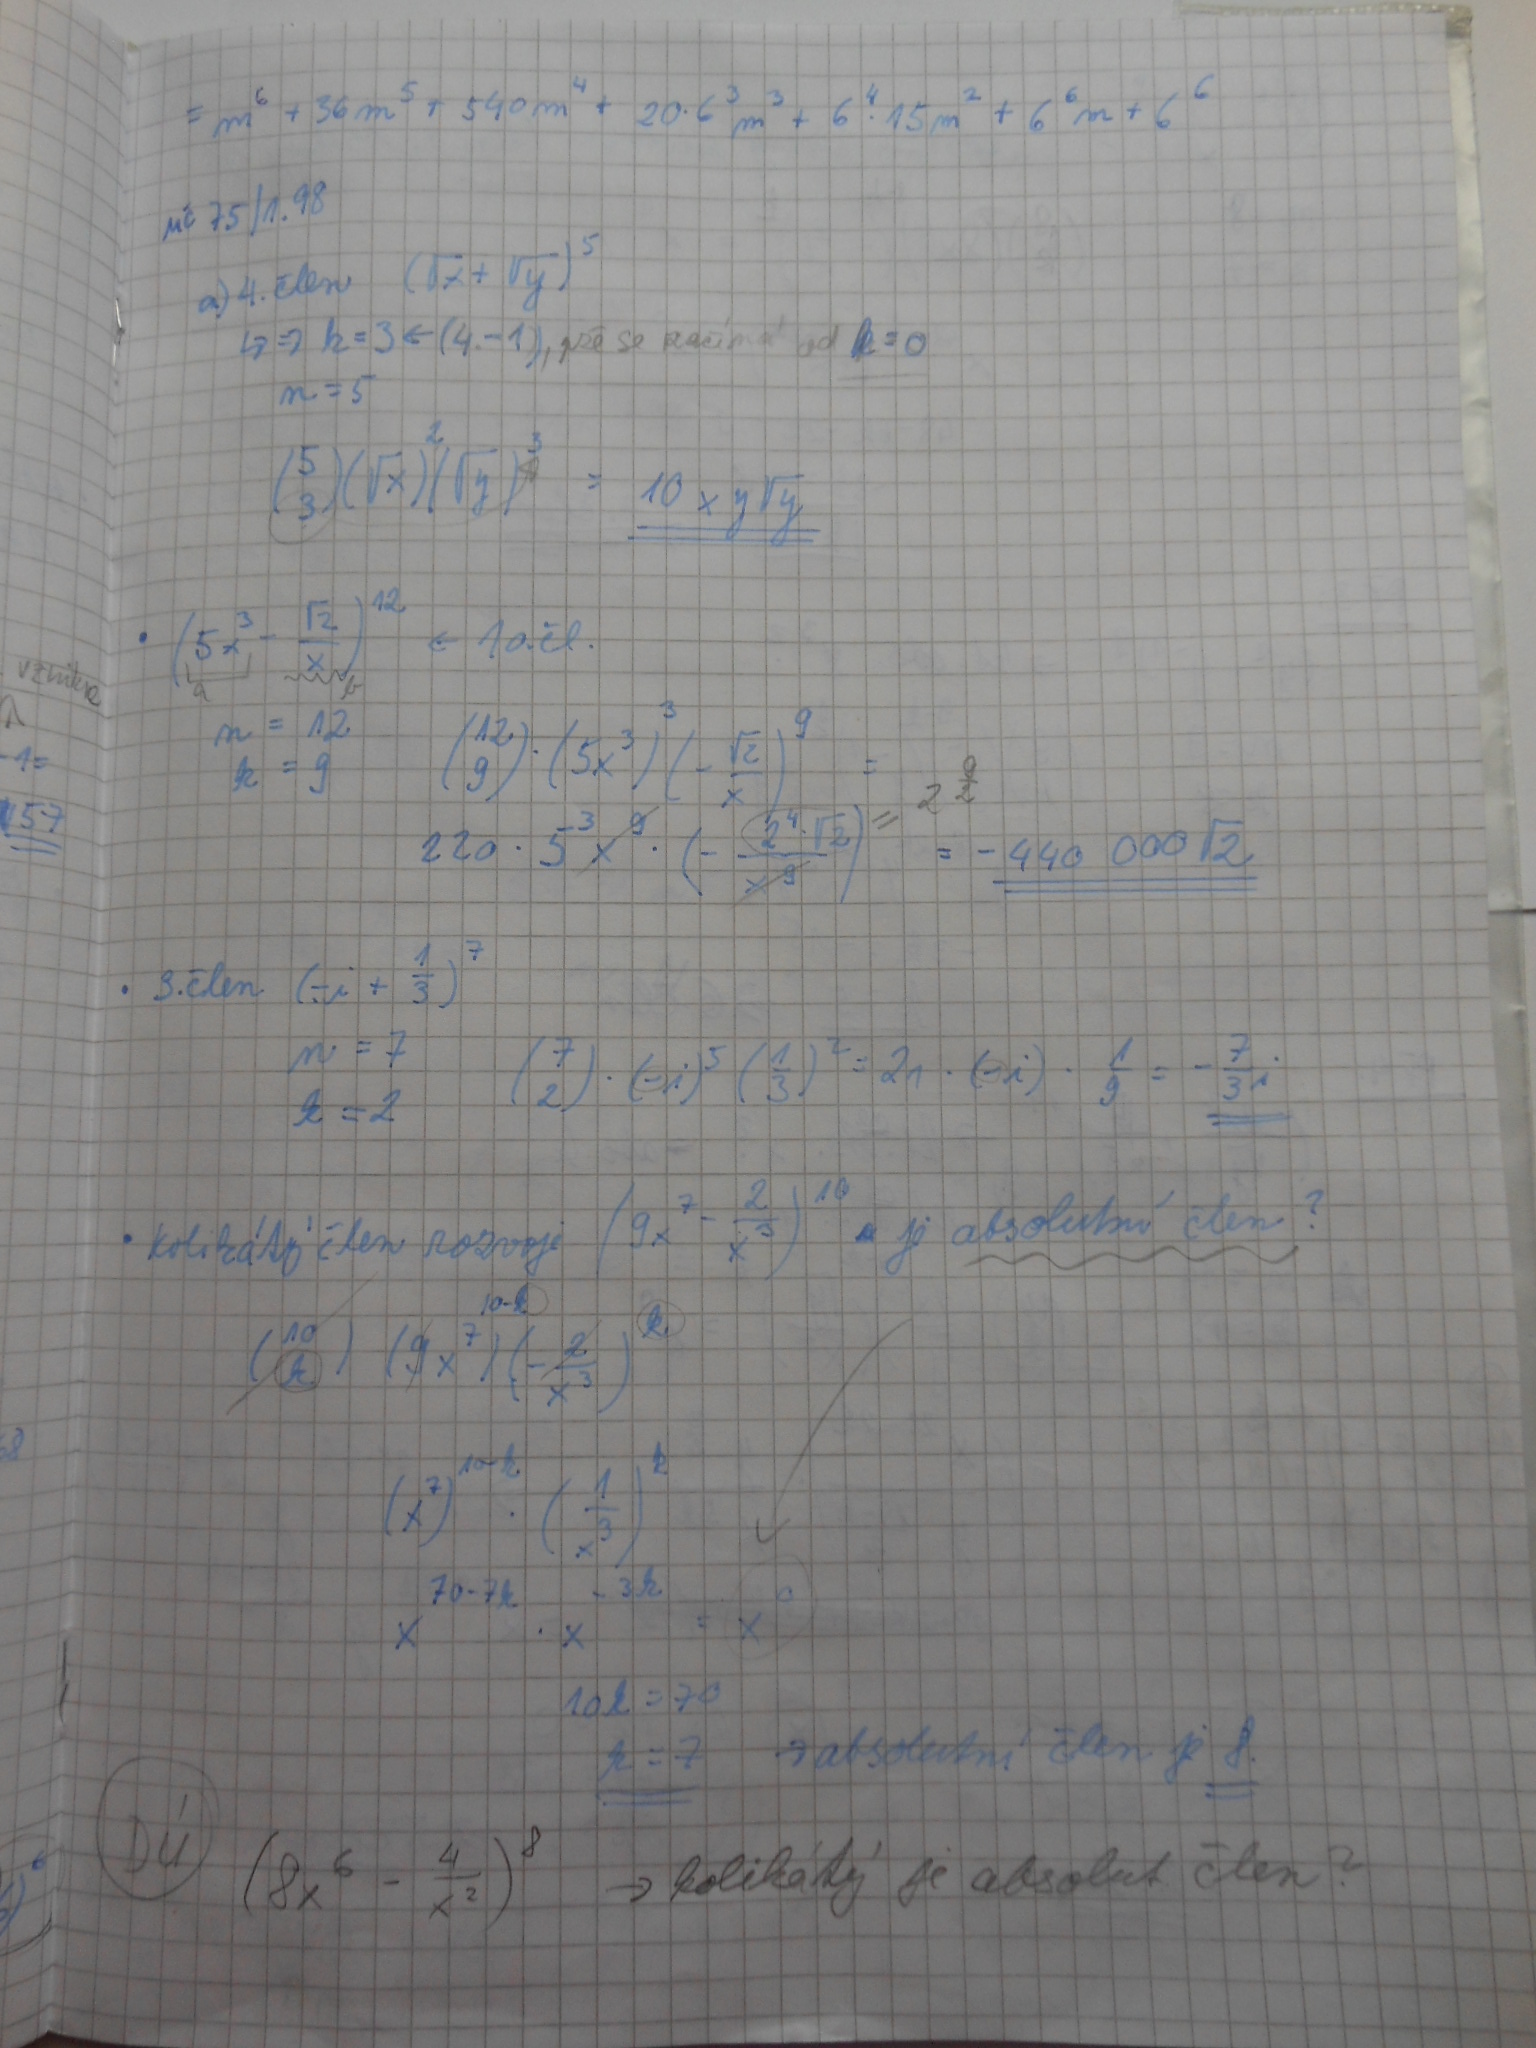 = m⁶ + 36m⁵ + 540m⁴ + 20·6³m³ + 6⁴·15m² + 6⁶m + 6⁶
75/1.98
a) 4. člen (√x + √y)⁵
↳ => k = 3 ← (4.-1), pže se začíná od k = 0
n = 5
(5 3)(√x)²(√y)³ = 10xy√y
• (5x³ - √2/x)¹² ← 10.čl.
a b
n = 12
k = 9
(12 9)·(5x³)³(-√2/x)⁹ =
220·5³x⁹·(-2⁴·√2/x⁹) = - 440 000√2
= 2^(9/2)
• 3.člen (-i + 1/3)⁷
n = 7
k = 2
(7 2)·(-i)⁵(1/3)² = 21·(-i)·1/9 = -7/3 i
• kolikátý člen rozvoje (9x⁷ - 2/x³)¹⁰ je absolutní člen?
(10 k) (9x⁷)^(10-k) (-2/x³)^k
(x⁷)^(10-k) · (1/x³)^k
x^(70-7k) · x^(-3k) = x⁰
10k = 70
k = 7 → absolutní člen je 8.
DÚ (8x⁶ - 4/x²)⁸ → kolikátý je absolut člen?
vznikne
-1=
157
68